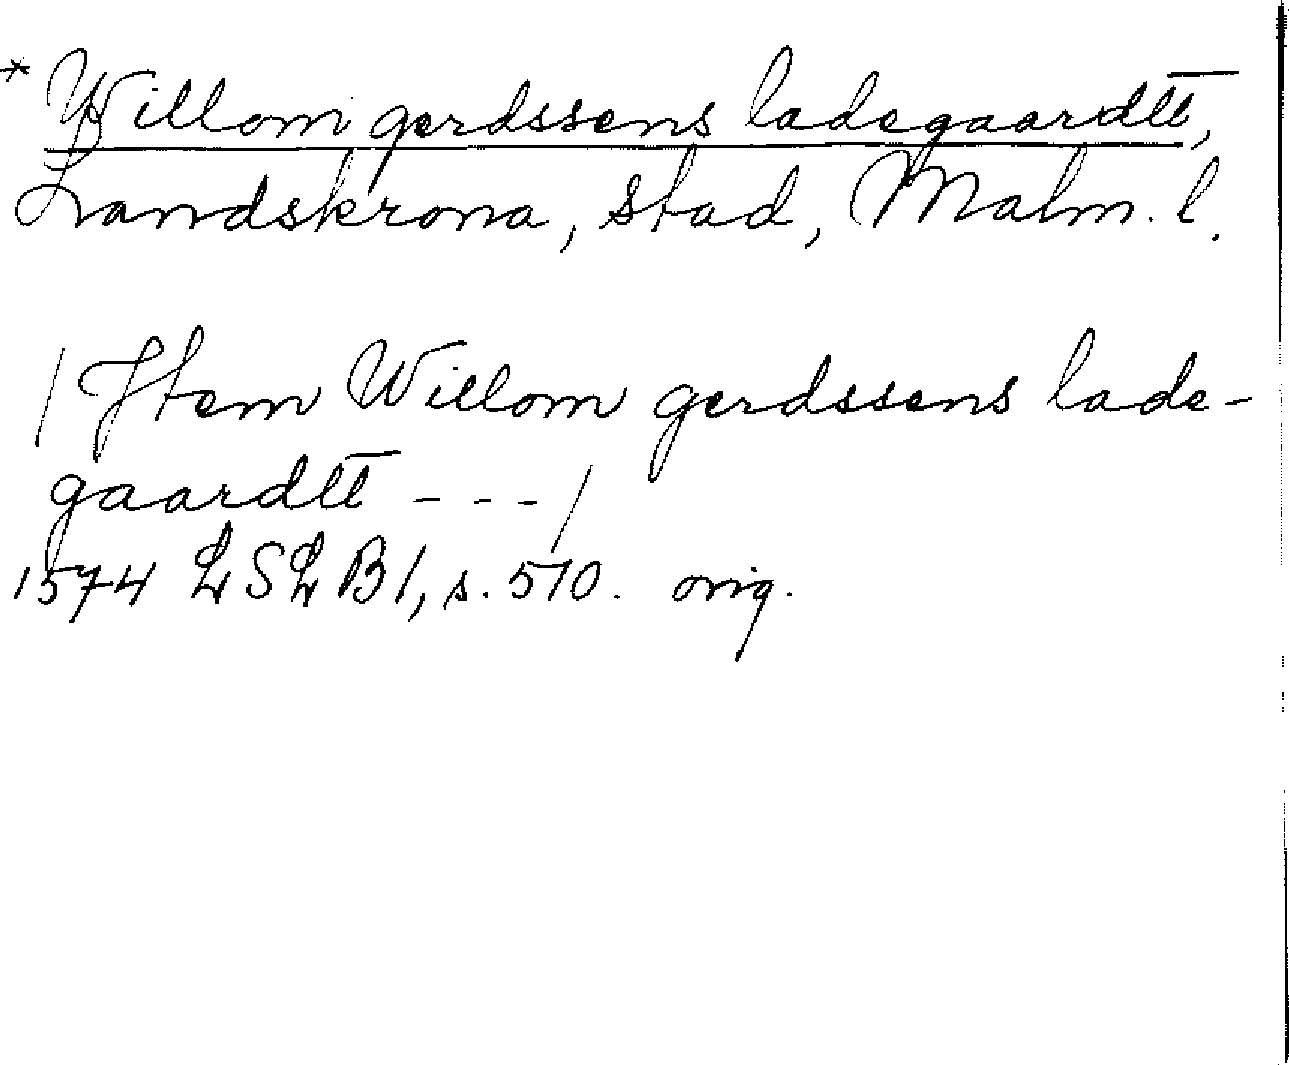 * Willom gerdssens ladegaardtt,
Landskrona, stad, Malm. l.
/ Jtem Willom gerdssens lade-
gaardtt - - - /
1574 LSLB1, s. 510. orig.